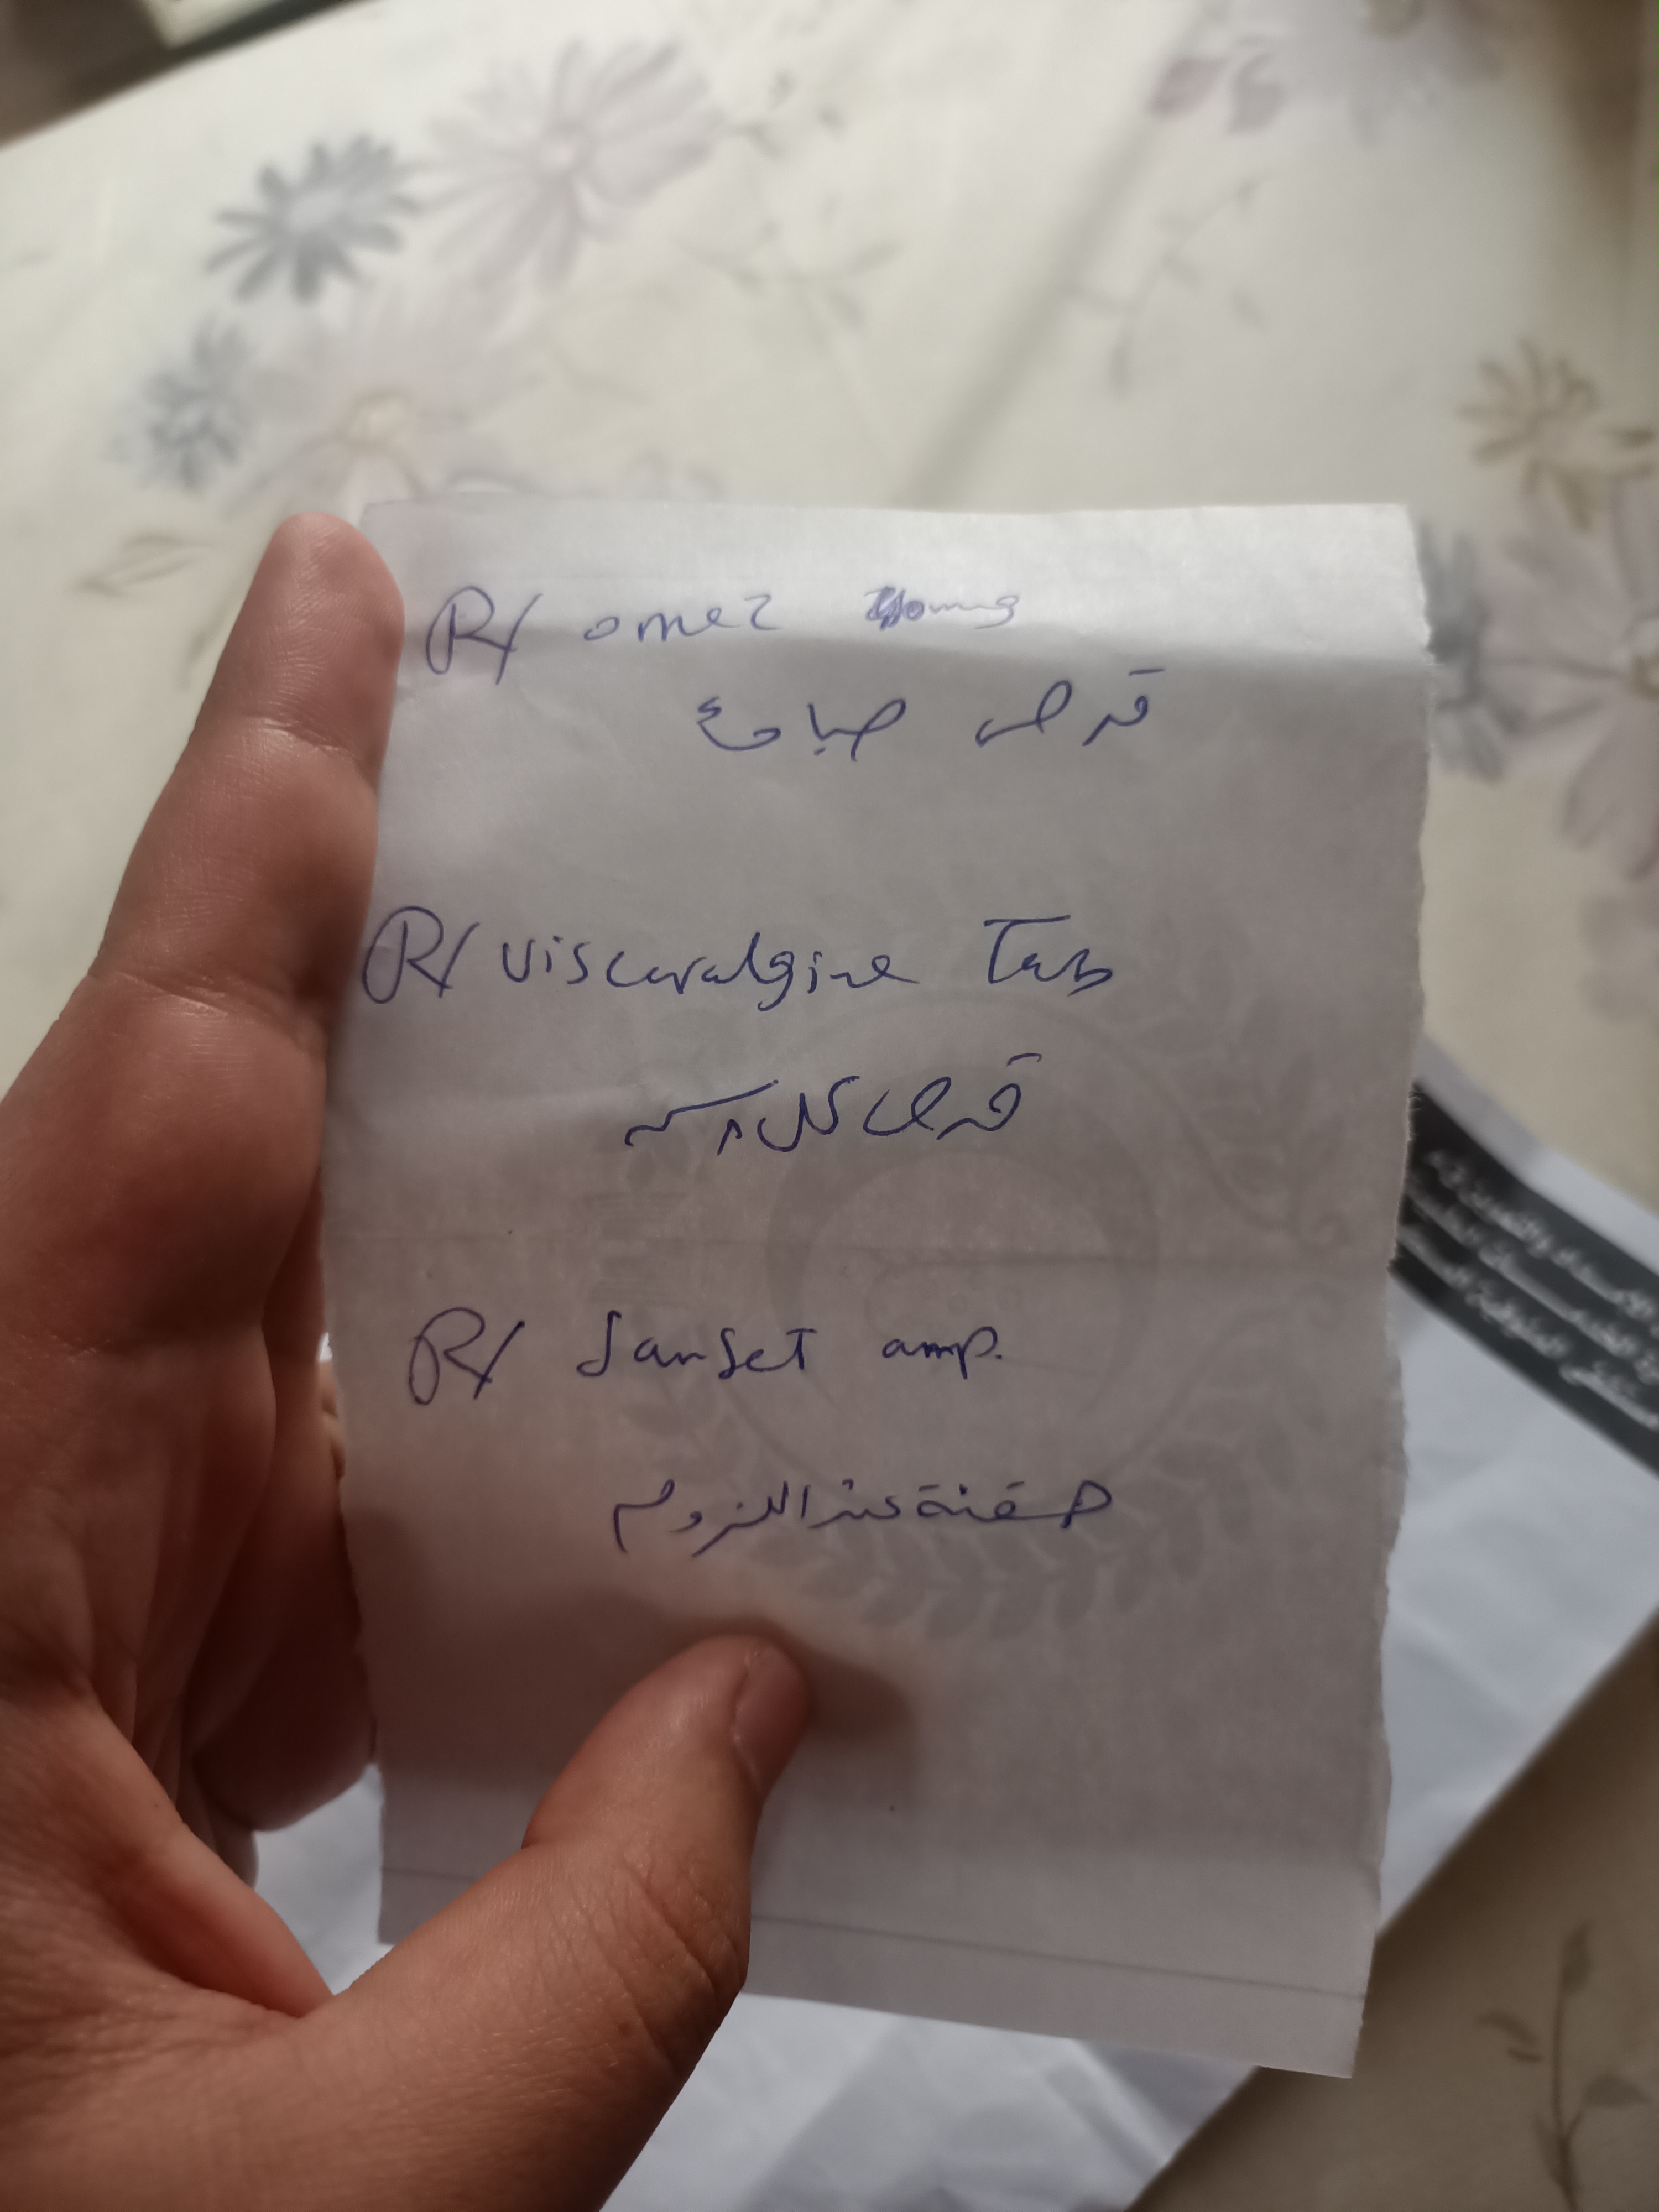 R/ omez 40 mg
قرص صباحاً
R/ visceralgine Tab
قرص كل
R/ Sanset amp.
حقنة عند اللزوم